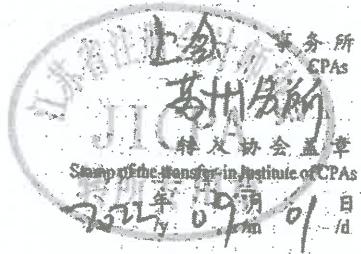 上会 事务所
CPAs
苏州分所
转入协会盖章
Stamp of the transfer-in Institute of CPAs
2022 年 09 月 01 日
/y /m /d
江苏省注册会计师协会
JICPA